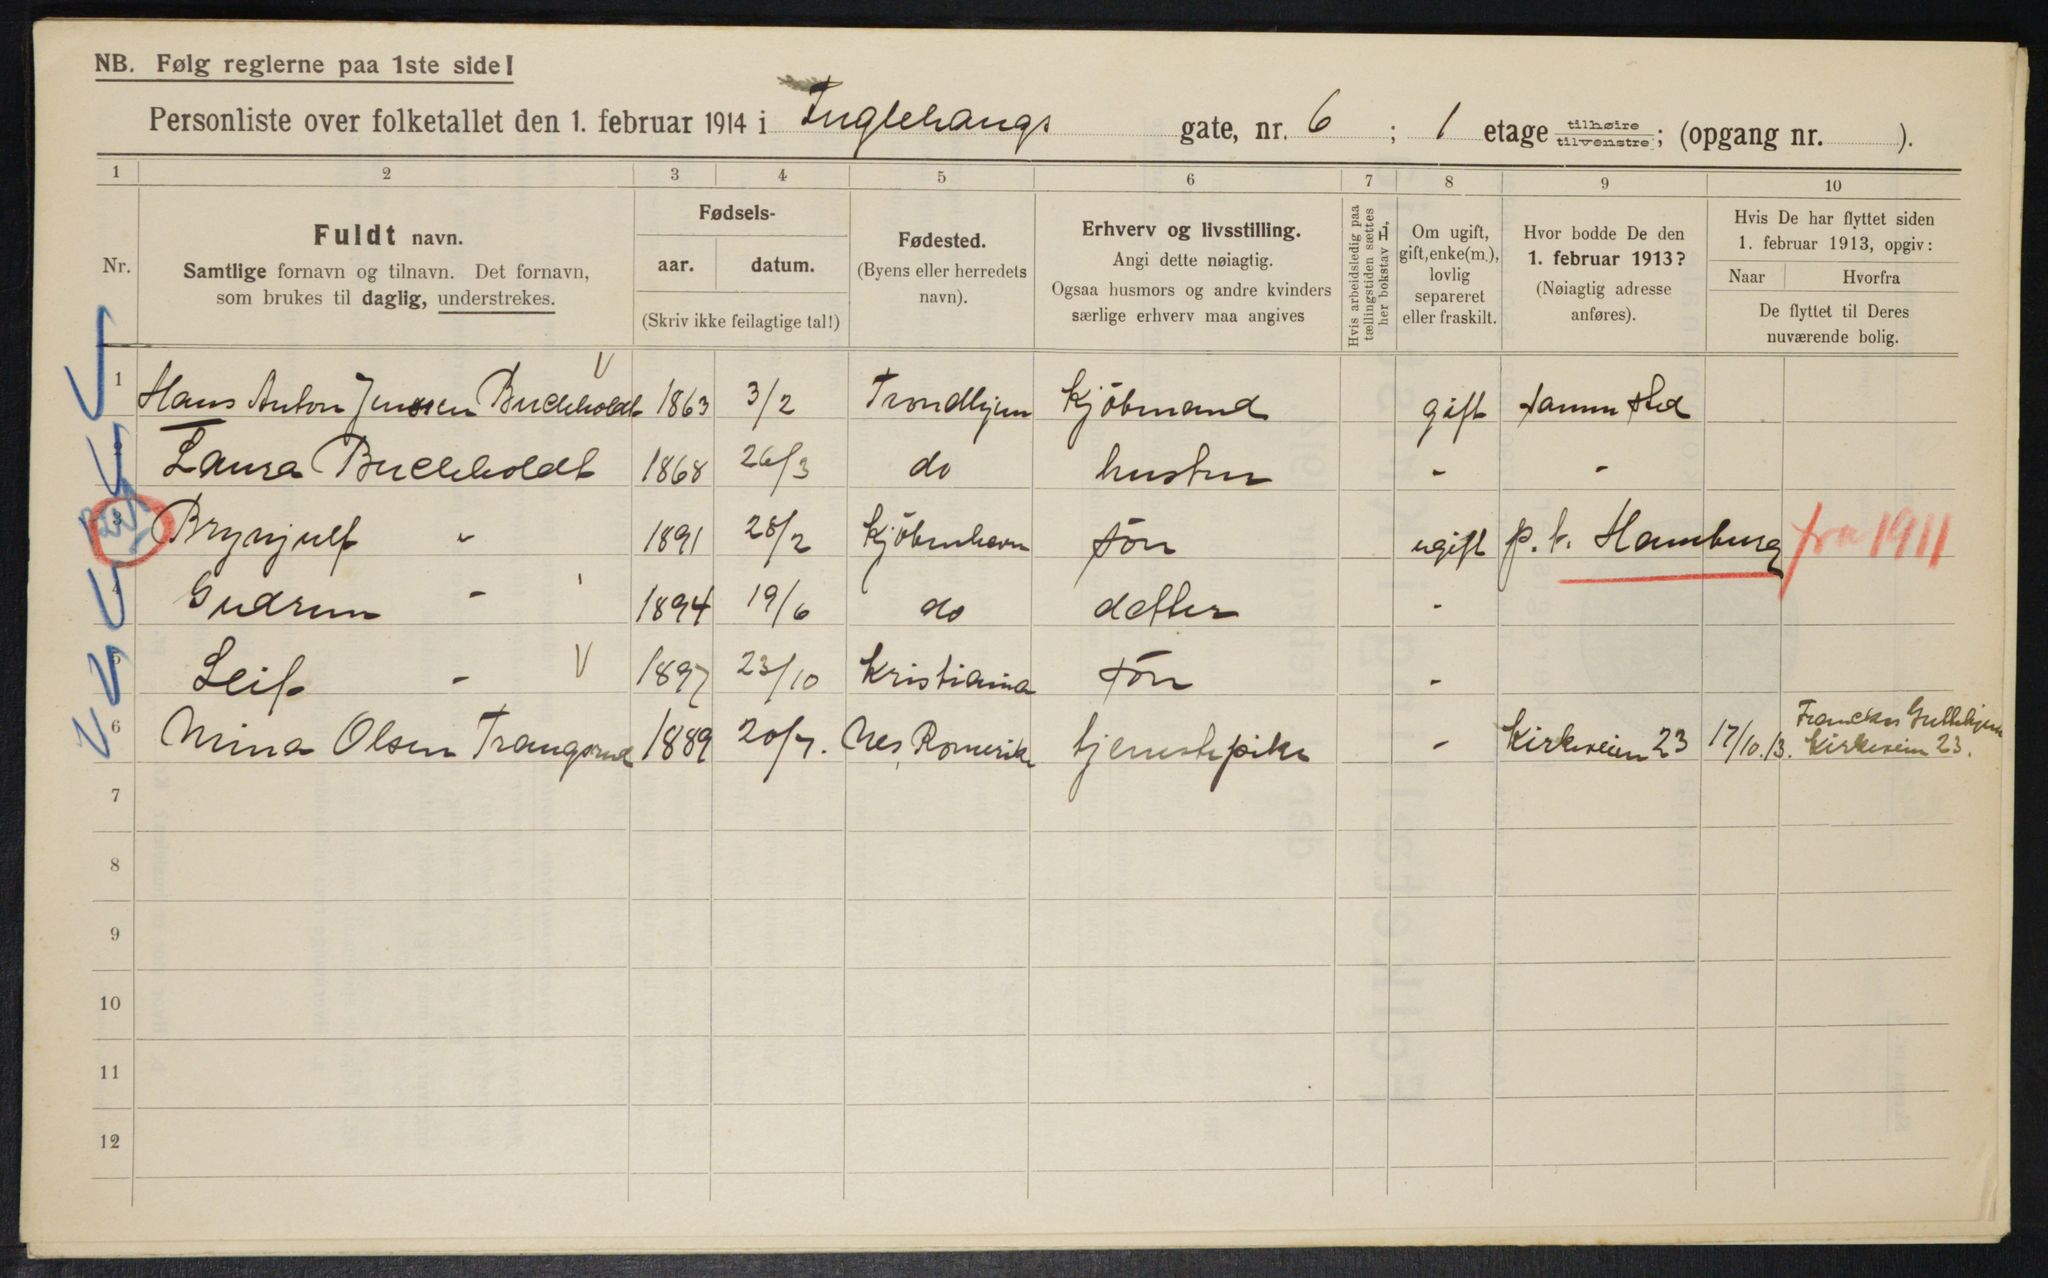 NB. Følg reglerne paa 1ste side!
Personliste over folketallet den 1. februar 1914 i Fuglehaugs gate, nr. 6 ; 1 etage tilhøire/tilvenstre; (opgang nr. ).
1 2 3 4 5 6 7 8 9 10
Nr.
Fuldt navn.
Samtlige fornavn og tilnavn. Det fornavn,
som brukes til daglig, understrekes.
Fødsels-
aar. datum.
(Skriv ikke feilagtige tal!)
Fødested.
(Byens eller herredets
navn).
Erhverv og livsstilling.
Angi dette nøiagtig.
Ogsaa husmors og andre kvinders
særlige erhverv maa angives
Hvis arbeidsledig paa
tællingstiden sættes
her bokstav H.
Om ugift,
gift, enke(m.),
lovlig
separeret
eller fraskilt.
Hvor bodde De den
1. februar 1913?
(Nøiagtig adresse
anføres).
Hvis De har flyttet siden
1. februar 1913, opgiv:
Naar Hvorfra
De flyttet til Deres
nuværende bolig.
1 Hans Anton Jenssen Buchholdt 1863 3/2 Trondhjem Kjöbmand gift samme sted
2 Laura Buchholdt 1868 26/3 do hustru " "
3 Brynjulf " 1891 28/2 Kjöbenhavn sön ugift p.t. Hamburg fra 1911
4 Gudrun " 1894 19/6 do datter "
5 Leif " 1897 23/10 Kristiania sön "
6 Mina Olsen Trangsrud 1889 20/7. Nes, Romerike tjenestepike " Kirkeveien 23 17/10.13. Kirkeveien 23.
7
8
9
10
11
12